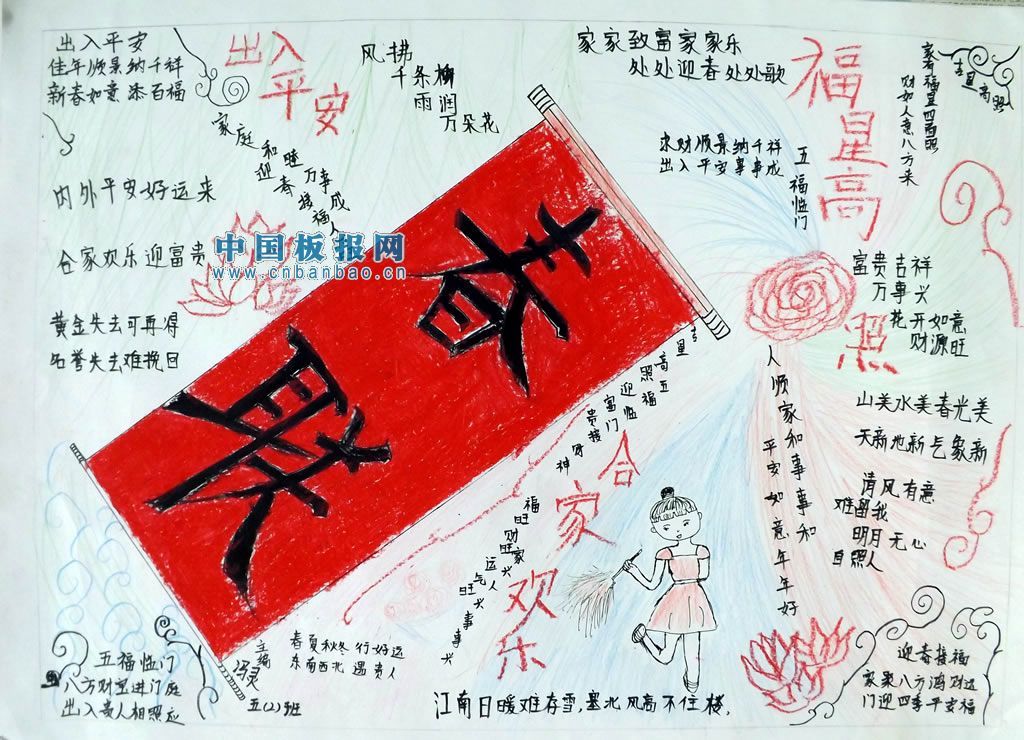 出入平安
佳年顺景纳千祥
新春如意添百福
出入
平安
风拂
千条柳
雨润
万朵花
家家致富家家乐
处处迎春处处歌
福星高照
家有福星四面照
财如人意八方来
吉星高照
家庭和睦万事成
迎春接福人
内外平安好运来
合家欢乐迎富贵
黄金失去可再得
名誉失去难挽回
中国板报网
www.cnbanbao.cn
春联
求财顺景纳千祥
出入平安事事成
五福临门
富贵吉祥
万事兴
花开如意
财源旺
人顺家和事事和
平安如意年年好
山美水美春光美
天新地新气象新
清风有意
难留我
明月无心
自照人
吉星高照迎富贵
五福临门接财神
合家欢乐
福旺财旺运气旺
家兴人兴事事兴
主编
五(2)班
春夏秋冬行好运
东南西北遇贵人
五福临门
八方财宝进门庭
出入贵人相照应
江南日暖难存雪,塞北风高不住楼.
迎春接福
家聚八方鸿财运
门迎四季平安福